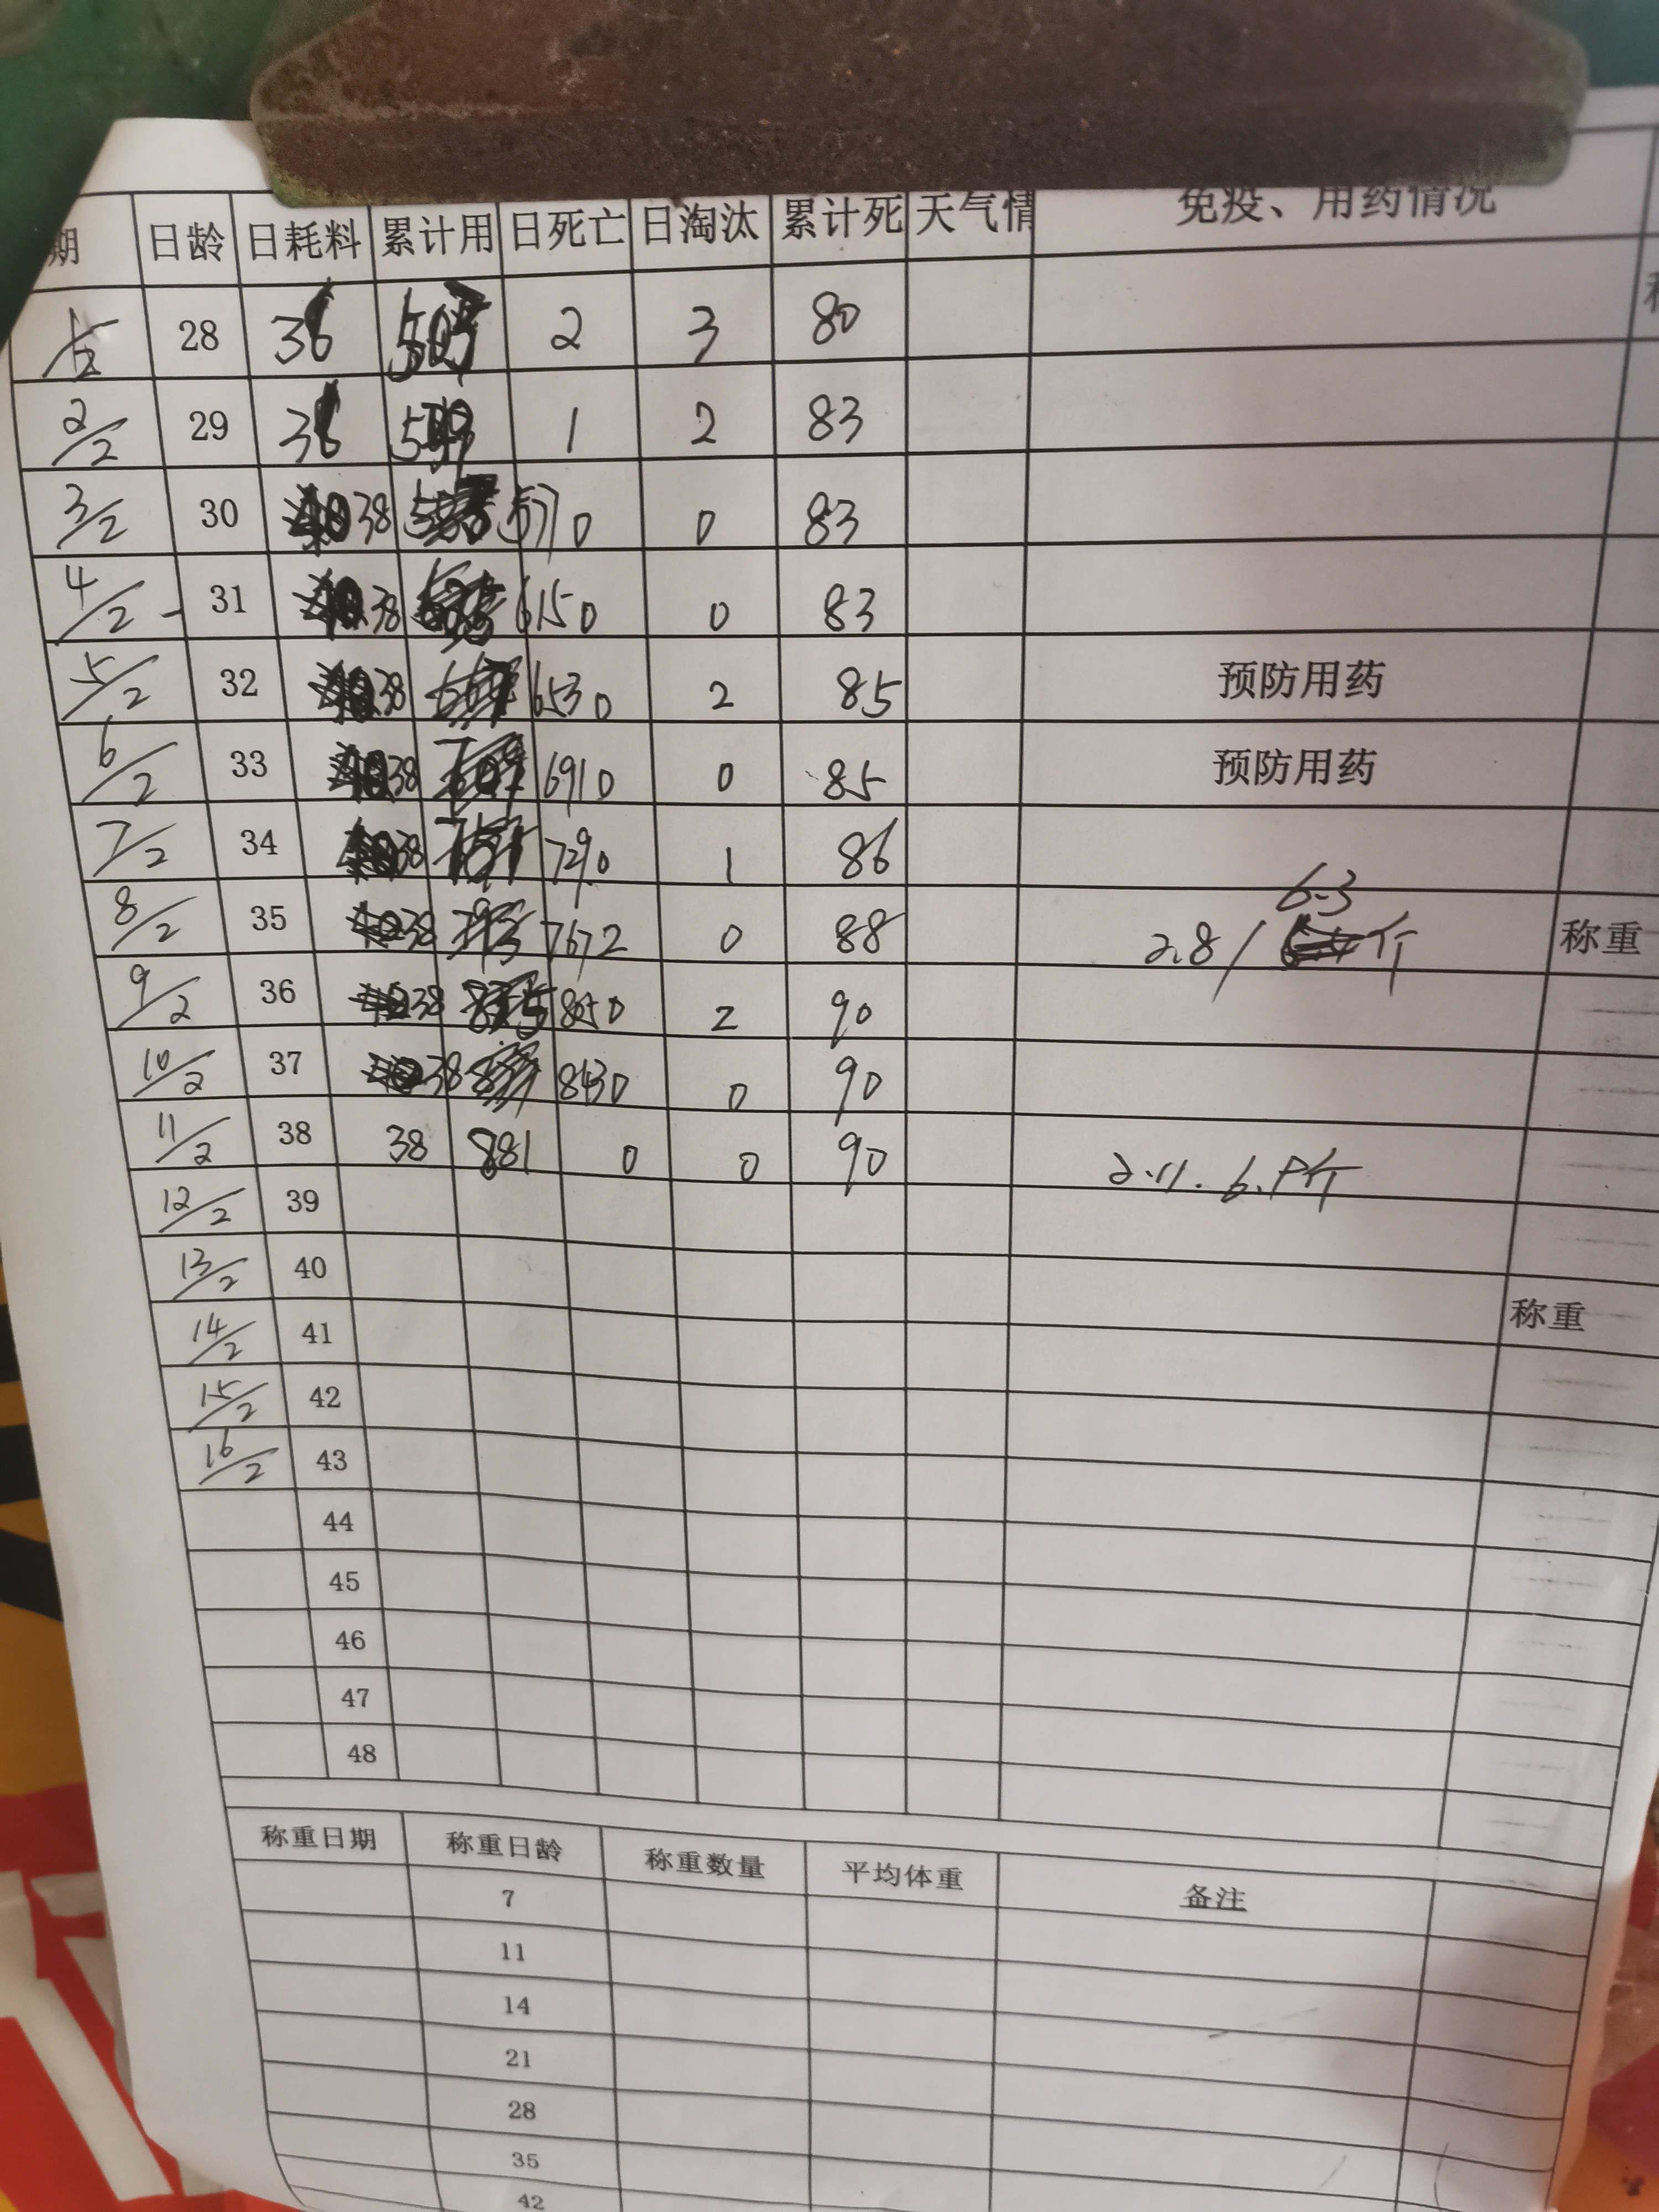 期 日龄 日耗料 累计用 日死亡 日淘汰 累计死 天气情 免疫、用药情况
1/2 28 36 2 3 80
2/2 29 36 1 2 83
3/2 30 38 571 0 0 83
4/2 31 38 615 0 0 83
5/2 32 38 653 0 2 85 预防用药
6/2 33 38 691 0 0 85 预防用药
7/2 34 38 729 0 1 86
8/2 35 38 767 2 0 88 2.8/ 6.3 斤 称重
9/2 36 38 805 0 2 90
10/2 37 38 843 0 0 90
11/2 38 38 881 0 0 90 2.11.
12/2 39
13/2 40 称重
14/2 41
15/2 42
16/2 43
44
45
46
47
48
称重日期 称重日龄 称重数量 平均体重 备注
7
11
14
21
28
35
42